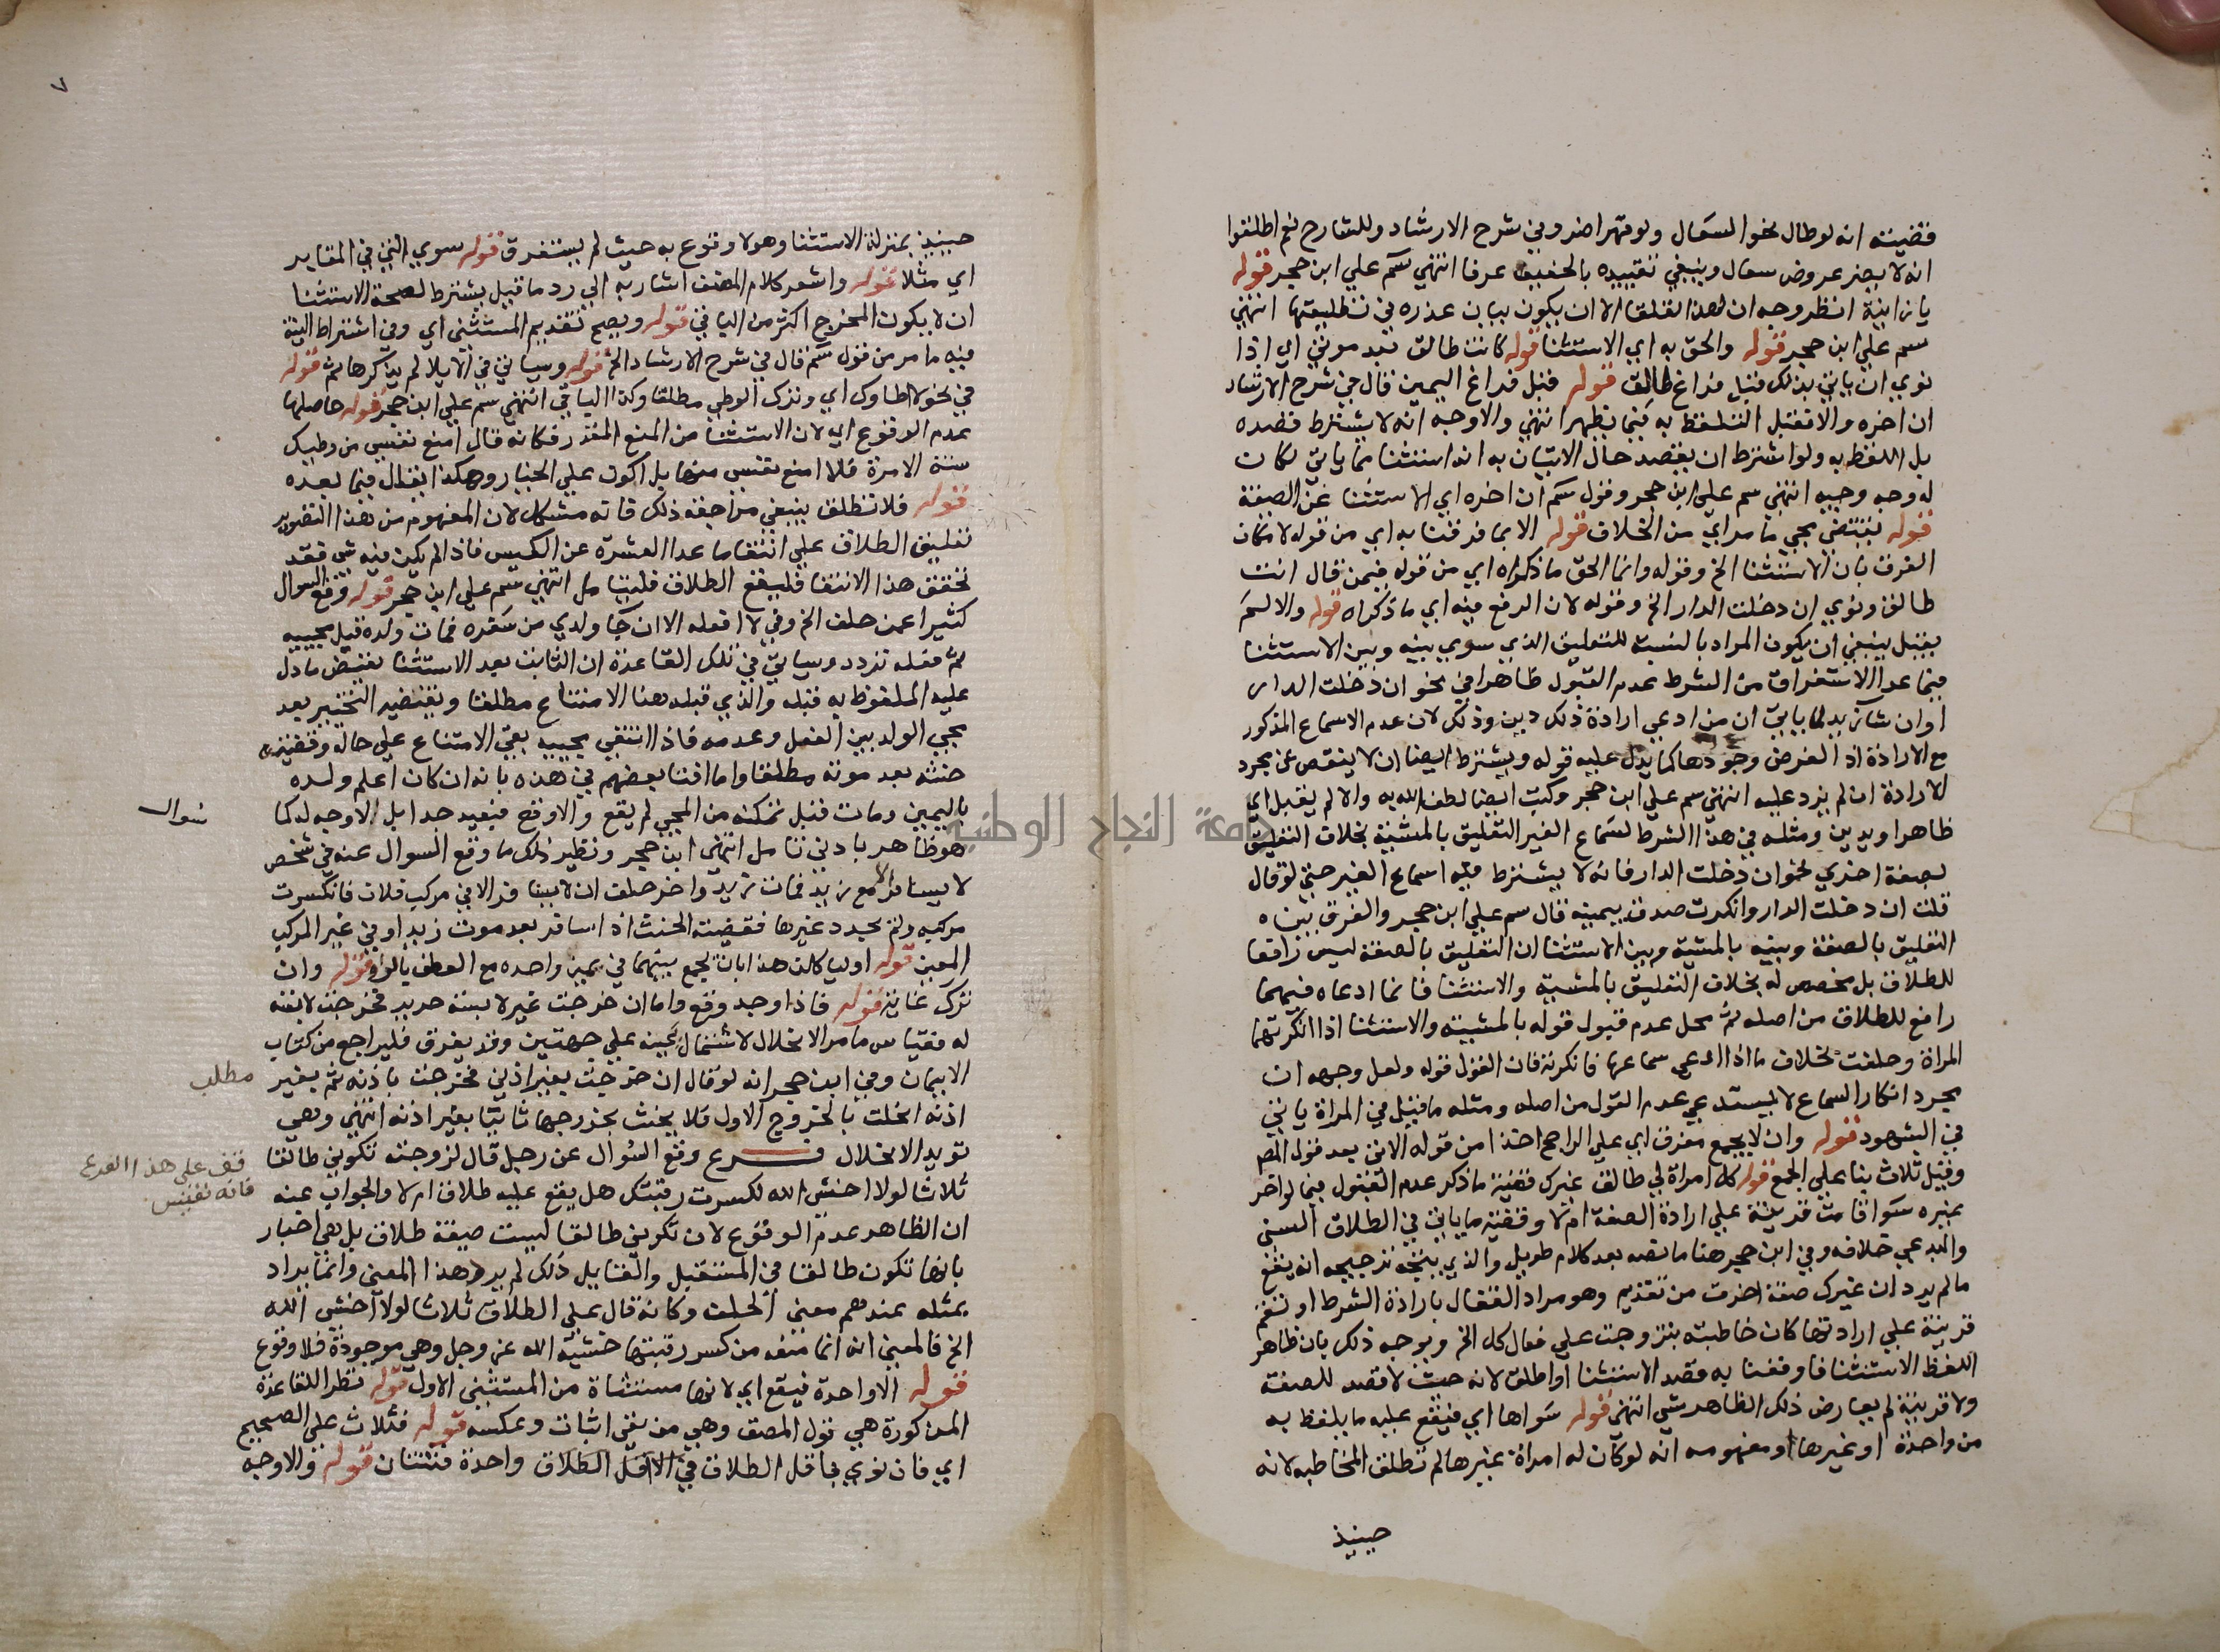 قضيته انه لو طال نحو السعال ولو قهرا ضر وفي شرح الارشاد وللشارح نعم اطلقوا
انه لا يضر عروض سعال وينبغي تقييده بالخفيف عرفا انتهى سم علي ابن حجر قوله
يا زانية انظر وجه ان لهذا تعلقا الا ان يكون بيان عذره في تطليقها انتهى
سم علي ابن حجر قوله والحق به اي الاستثنا قوله كانت طالق بعد موتي اي اذا
نوي ان ياتي بذلك قبل فراغ طالق قوله قبل فراغ اليمين قال في شرح الارشاد
ان اخره والا فقبل التلفظ به فيما يظهر انتهي والاوجه انه لا يشترط قصده
بل اللفظ به ولو اشترط ان يقصد حال الاتيان به انه استثنا مما ياتي لكان
له وجه وجيه انتهي سم علي ابن حجر وقول سم ان اخره اي الاستثنا عن الصيغة
قوله يقتضي مجي ما مر اي من الخلاف قوله الا بما فرقنا به اي من قوله لامكان
الفرق بان الاستثنا الخ وقوله وانما الحق ما ذكراه اي من قوله فيمن قال انت
طالق ونوي ان دخلت الدار الخ وقوله لان الرفع فيه اي ما ذكراه قوله والا لم
يقبل ينبغي ان يكون المراد بالنسبة للتعليق الذي سوي بينه وبين الاستثنا
فيما عدا الاستغراق من الشرط عدم القبول ظاهرا في نحو ان دخلت الدار
او ان شا زيد لما ياتي ان من ادعي ارادة ذلك دين وذلك لان عدم الاسماع المذكور
مع الارادة اذ الفرض وجودها كما يدل عليه قوله ويشترط ايضا ان لا ينقص عن مجرد
الارادة ان لم يزد عليه انتهي سم علي ابن حجر وكتب ايضا لطف الله به والا لم يقبل اي
ظاهرا ويدين ومثله في هذا الشرط لسماع الغير التعليق بالمشية بخلاف التعليق
بصفة اخري نحو ان دخلت الدار فانه لا يشترط فيه اسماع الغير حتي لو قال
قلت ان دخلت الدار وانكرت صدق بيمينه قال سم علي ابن حجر والفرق بين
التعليق بالصفة وبينه بالمشية وبين الاستثنا ان التعليق بالصفة ليس رافعا
للطلاق بل مخصص له بخلاف التعليق بالمشية والاستثنا فانما ادعاه فيهما
رافع للطلاق من اصله ثم محل عدم قبول قوله بالمشية والاستثنا اذا انكرتهما
المراة وحلفت بخلاف ما اذا ادعي سماعها فانكرته فان القول قوله ولعل وجهه ان
مجرد انكار السماع لا يستدعي عدم القول من اصله ومثله ما قيل في المراة ياتي
في الشهود قوله وان لا يجمع مفرق اي علي الراجح اخذا من قوله الاتي بعد قول المص
وقيل ثلاث بنا علي الجمع قوله كل امراة لي طالق غيرك قضية ما ذكر عدم القبول فيما لو اخر
غيره سوا قامت قرينة علي ارادة الصفة ام لا وقضية ما ياتي في الطلاق السني
والبدعي خلافه وفي ابن حجر هنا ما نصه بعد كلام طويل والذي يتجه ترجيحه انه يقع
ما لم يرد ان غيرك صفة اخرت من تقديم وهو مراد القفال بارادة الشرط او تقم
قرينة علي ارادتها كان خاطبته بتزوجت علي فقال كل الخ ويوجه ذلك بان ظاهر
اللفظ الاستثنا فاوقعنا به قصد الاستثنا او اطلق لانه حيث لا قصد للصفة
ولا قرينة لم يعارض ذلك الظاهر شي انتهي قوله سواها اي فيقع عليه ما يلفظ به
من واحدة او غيرها ومفهومه انه لو كان له امراة غيرها لم تطلق المخاطبة لانه
حينيذ
٧
حينيذ بمنزلة الاستثنا وهو لا وقوع به حيث لم يستغرق قوله سوي التي في المقابر
اي مثلا قوله واشعر كلام المصنف اشار به الي رد ما قيل يشترط لصحة الاستثنا
ان لا يكون المخرج اكثر من الباقي قوله ويصح تقديم المستثني اي وفي اشتراط النية
فيه ما مر من قول سم قال في شرح الارشاد الخ قوله وسياتي في الايلا لم يذكرها ثم قوله
في نحو لا اطاوك اي وترك الوطي مطلقا وكذا الباقي انتهي سم علي ابن حجر قوله حاصلها
عدم الوقوع اي لان الاستثنا من المنع المقدر فكانه قال امنع نفسي من وطيك
سنة الا مرة فلا امنع نفسي منها بل اكون علي الخيار وهكذا يقال فيما بعده
قوله فلا تطلق ينبغي مراجعة ذلك فانه مشكل لان المفهوم من هذا التصوير
تعليق الطلاق علي انتفا ما عدا العشرة عن الكيس فاذا لم يكن فيه شي فقد
تحقق هذا الانتفا فليقع الطلاق فليتامل انتهي سم علي ابن حجر قوله وقع السوال
كثيرا عمن حلف الخ وفي لا افعله الا ان جا ولدي من سفره فمات ولده قبل مجييه
ثم فعله تردد وسياتي في تلك القاعدة ان الثابت بعد الاستثنا نقيض ما دل
عليه الملفوظ به قبله والذي قبله هنا الامتناع مطلقا ونقيضه التخيير بعد
مجي الولد بين الفعل وعدمه فاذا انتفي مجييه بقي الامتناع علي حاله وقضيته
حنثه بعد موته مطلقا واما افتا بعضهم في هذه بانه ان كان اعلم ولده
باليمين ومات قبل تمكنه من المجي لم يقع والا وقع فبعيد جدا بل لا وجه له كما
هو ظاهر بادني تامل انتهي ابن حجر ونظير ذلك ما وقع السوال عنه في شخص
لا يسافر الا مع زيد فمات زيد واخر حلف ان لا يسافر الا في مركب فلان فانكسرت
مركبه ولم يجدد غيرها فقضيته الحنث اذا سافر بعد موت زيد او في غير المركب
المعين قوله اوليا كلن هذا بان يجمع بينهما في يمين واحده مع العطف بالواو قوله وان
ترك غايته قوله فاذا وجد وقع واما ان خرجت غير لابسة حرير فخرجت لابسته
له فقياس ما مر الانحلال لاشتمال يمينه علي جهتين وقد يفرق فليراجع من كتاب
الايمان وفي ابن حجر انه لو قال ان خرجت بغير اذني فخرجت باذنه ثم بغير
اذنه انحلت بالخروج الاول فلا يحنث بخروجها ثانيا بغير اذنه انتهي وهي
تويد الانحلال فـــرع وقع السوال عن رجل قال لزوجته تكوني طالقا
ثلاثا لولا اخشي الله لكسرت رقبتك هل يقع عليه طلاق ام لا والجواب عنه
ان الظاهر عدم الوقوع لان تكوني طالقا ليست صيغة طلاق بل هي اخبار
بانها تكون طالقا في المستقبل والقايل ذلك لم يرد هذا المعني وانما يراد
بمثله عندهم معني الحلف وكانه قال علي الطلاق ثلاثا لولا اخشي الله
الخ فالمعني انه انما منعه من كسر رقبتها خشية الله عز وجل وهي موجودة فلا وقوع
قوله الا واحدة فيقع اي لانها مستثناة من المستثني الاول قوله نظرا للقاعدة
المذكورة هي قول المصنف وهي من نفي اثبات وعكسه قوله فثلاث علي الصحيح
اي فان نوي باقل الطلاق في الا اقل الطلاق واحدة فثنتان قوله والاوجه
سوال
مطلب
قف علي هذا الفرع
فانه نفيس
جامعة النجاح الوطنية